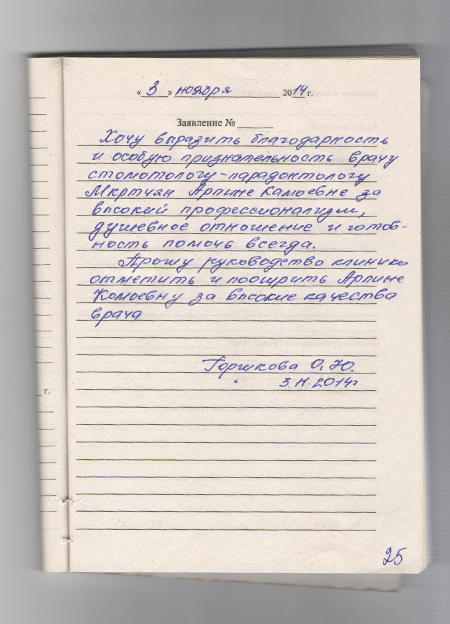 « 3 » ноября 2014 г.
Заявление №
Хочу выразить благодарность
и особую признательность врачу
стоматологу-парадонтологу
Мкртчян Арпине Камоевне за
высокий профессионализм,
душевное отношение и готов-
ность помочь всегда.
Прошу руководство клиники
отметить и поощрить Арпине
Камоевну за высокие качества
врача
Горшкова О.Ю.
3.11.2014г
г.
25